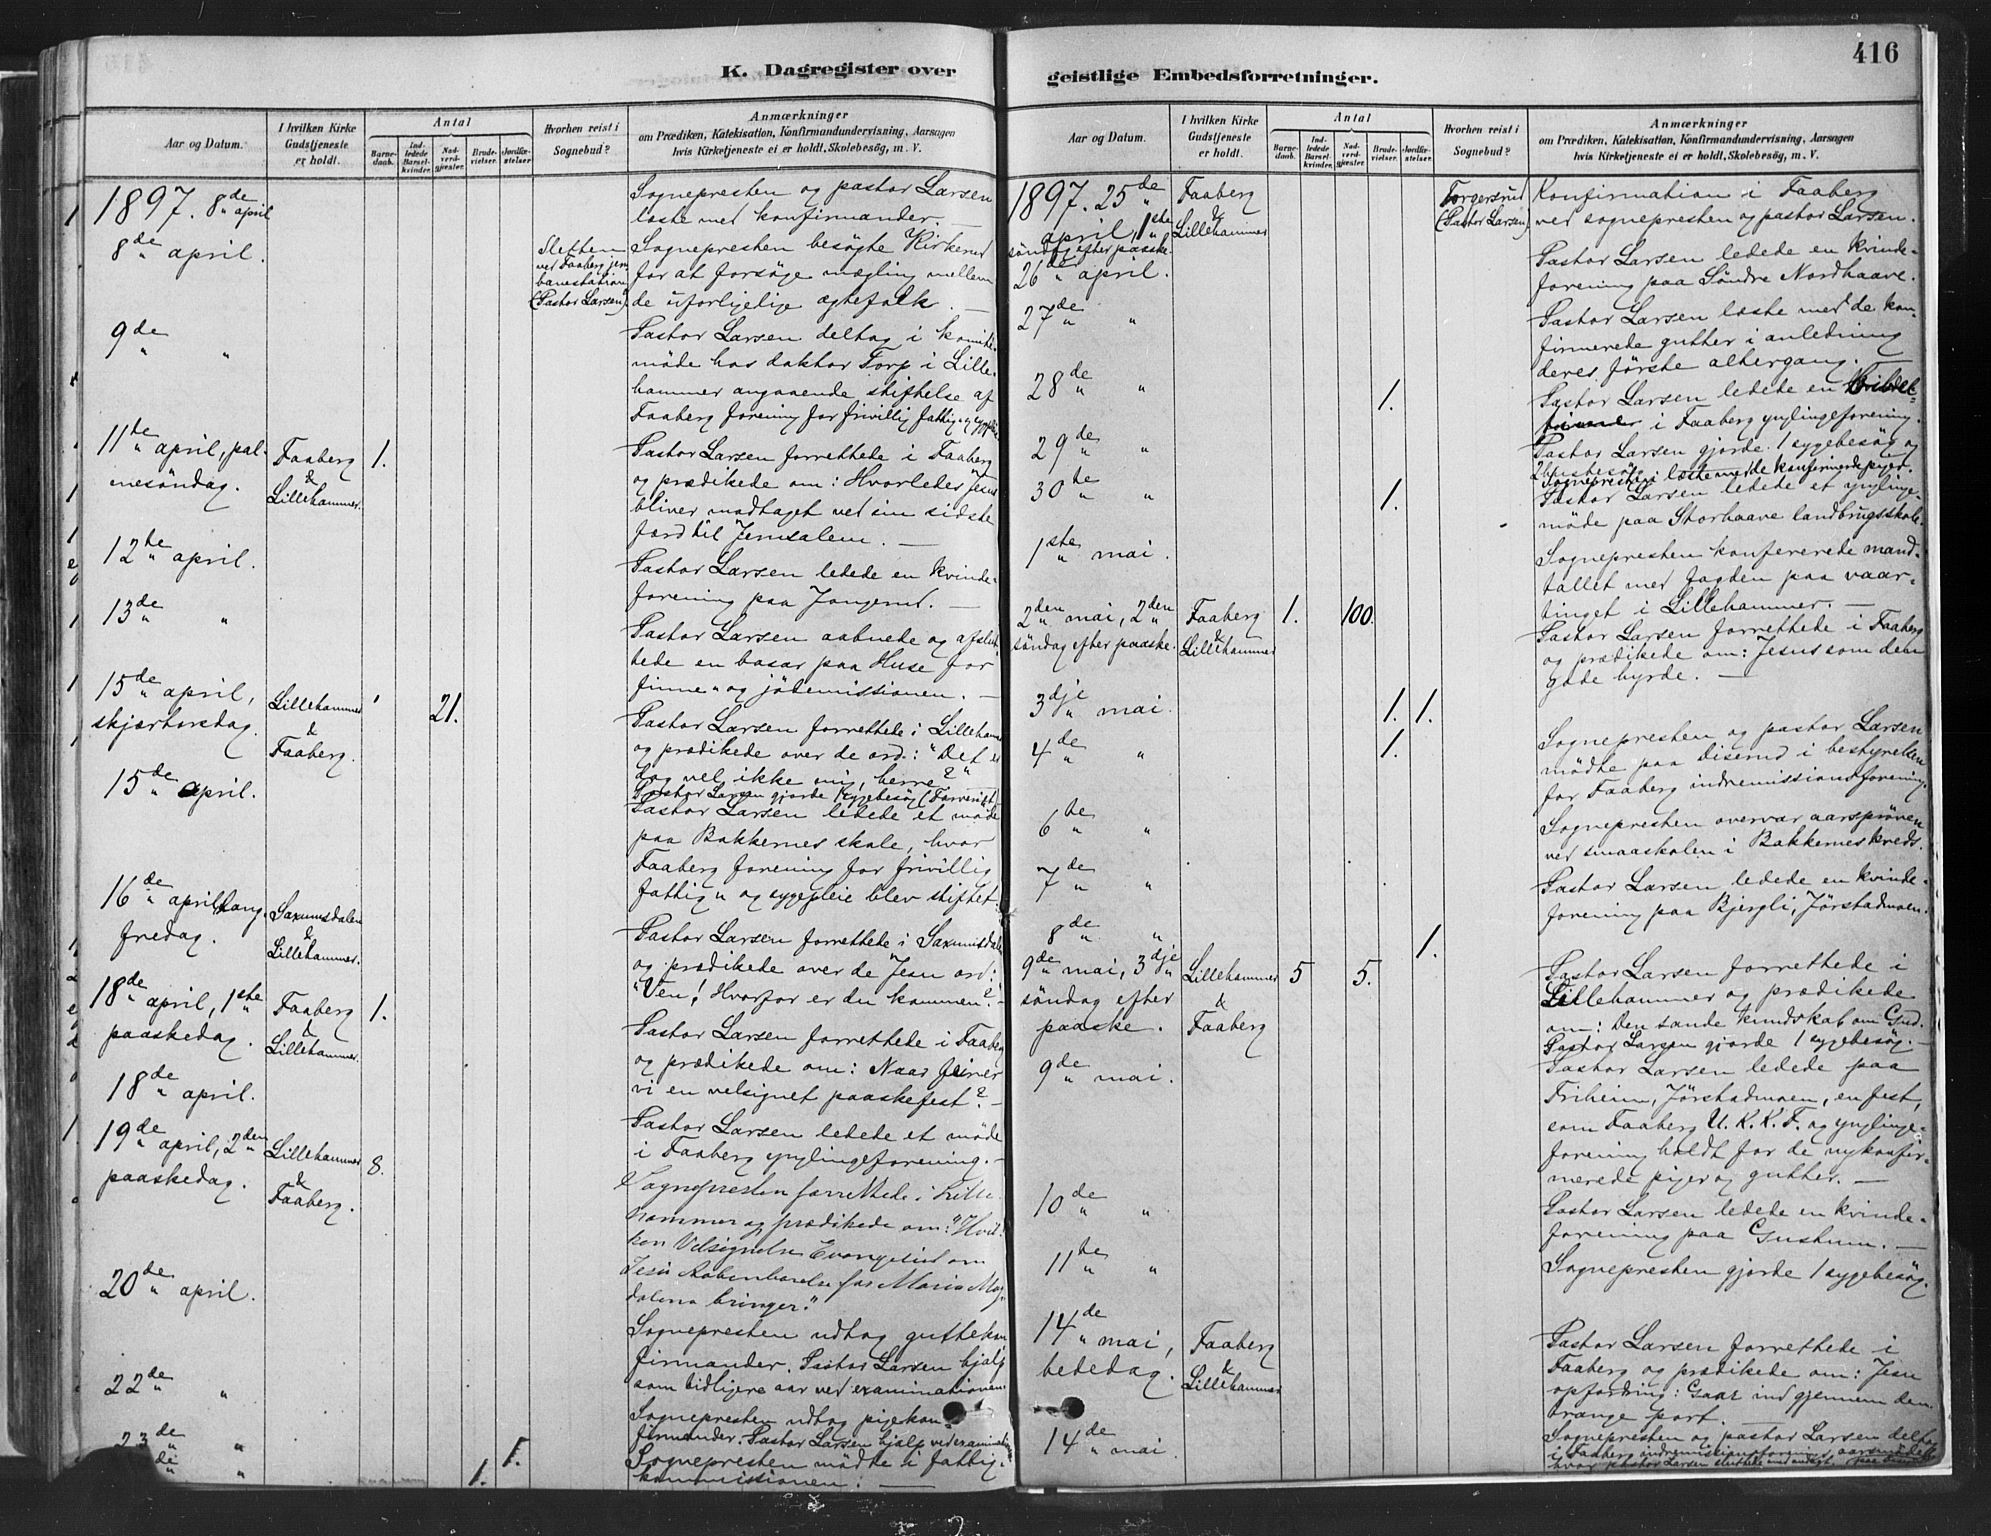 K. Dagregister over
Aar og Datum.
I hvilken Kirke Gudstjeneste er holdt.
Antal
Barne-daab.
Ind-ledede Barsel-kvinder.
Nad-verd-gjæster.
Brude-vielser.
Jordfæ-stelser.
Hvorhen reist i Sognebud?
Anmærkninger
om Prædiken, Katekisation, Konfirmandundervisning, Aarsagen
hvis Kirketjeneste ei er holdt, Skolebesøg, m. V.
1897. 8de april
Sognepresten og pastor Larsen
læste med konfirmander.
8de april.
Sletten
ved Faaberg jern
banestation
(Pastor Larsen).
Sognepresten besøgte Kirkerud
for at forsøge mægling mellem
de uforligelige ægtefolk. —
9de " "
Pastor Larsen deltog i komite-
møde hos doktor Torp i Lille-
hammer angaaende stiftelse af
Faaberg forening for frivillig fattig- og
11te april, pal-
mesöndag.
Faaberg
&
Lillehammer.
1.
Pastor Larsen forrettede i Faaberg
og prædikede om: Hvorledes Jesus
bliver modtaget ved sin sidste
færd til Jerusalem. —
12te april.
Pastor Larsen ledede en kvinde-
forening paa Jongerud. —
13de " "
Pastor Larsen aabnede og afslut-
tede en basar paa Huse for
finne- og jödemissionen. —
15de april,
skjærtorsdag.
Lillehammer
&
Faaberg.
21.
Pastor Larsen forrettede i Lillehammer
og prædikede over de ord: "Det er
dog vel ikke mig, herre?"
Pastor Larsen gjorde sygebesøg
15de april.
Pastor Larsen ledede et møde
paa Bakkernes skole, hvor
Faaberg forening for frivillig
fattig- og sygepleie blev stiftet.
16de april, lang-
fredag.
Saxumsdalen
&
Lillehammer.
Pastor Larsen forrettede i Saxumsdalen
og prædikede over de Jesu ord:
"Ven! Hvorfor er du kommen?" —
18de april, 1ste
paaskedag.
Faaberg
&
Lillehammer.
1.
Pastor Larsen forrettede i Faaberg
og prædikede om: Naar feirer
vi en velsignet paaskefest? —
18de april.
Pastor Larsen ledede et møde
i Faaberg ynglingeforening. —
19de april, 2den
paaskedag.
Lillehammer
&
Faaberg.
8.
Sognepresten forrettede i Lille-
hammer og prædikede om: "Hvil-
ken Velsignelse Evangeliet om
Jesu Aabenbarelse for Maria Mag-
dalena bringer."
20de april.
Sognepresten udtog guttekon-
firmander. Pastor Larsen hjalp
som tidligere aar ved examinationen.
22de " "
Sognepresten udtog pigekon-
firmander. Pastor Larsen hjalp ved examinationen
23de " "
1.
Sognepresten mødte i fattig-
kommissionen. —
" "
1.
416
geistlige Embedsforretninger.
Aar og Datum.
I hvilken Kirke Gudstjeneste er holdt.
Antal
Barne-daab.
Ind-ledede Barsel-kvinder.
Nad-verd-gjæster.
Brude-vielser.
Jordfæ-stelser.
Hvorhen reist i Sognebud?
Anmærkninger
om Prædiken, Katekisation, Konfirmandundervisning, Aarsagen
hvis Kirketjeneste ei er holdt, Skolebesøg, m. V.
1897. 25de
april, 1ste
söndag efter paaske.
Faaberg
&
Lillehammer
Torgersrud
(Pastor Larsen)
Konfirmation i Faaberg
ved sognepresten og pastor Larsen.
26de april.
Pastor Larsen ledede en kvinde-
forening paa Söndre Nordhaave.
27de " "
Pastor Larsen læste med de kon-
firmerede gutter i anledning
deres første altergang. —
28de " "
1.
Pastor Larsen ledede en
i Faaberg ynglingeforening.
29de " "
Pastor Larsen gjorde 1 sygebesøg og
Sognepresten læste med de konfirmerede piger.
30te " "
1.
Pastor Larsen ledede et ynglinge-
møde paa Storhaave landbrugsskole.
1ste mai.
Sognepresten konfererede mand-
tallet med fogden paa vaar-
tinget i Lillehammer. —
2den mai, 2den
söndag efter paaske.
Faaberg
&
Lillehammer
1.
100.
Pastor Larsen forrettede i Faaberg
og prædikede om: Jesus som den
gode hyrde. —
3dje mai.
1.
1.
4de " "
1.
Sognepresten og pastor Larsen
mødte paa Diserud i bestyrelsen
for Faaberg indremissionsforening.
6te " "
Sognepresten overvar aarsprøven
ved smaaskolen i Bakkernes kreds.
7de " "
Pastor Larsen ledede en kvinde-
forening paa Bjergli, Jørstadmoen.
8de " "
1.
9de mai, 3dje
söndag efter
paaske.
Lillehammer
&
Faaberg
5
5.
Pastor Larsen forrettede i
Lillehammer og prædikede
om: Den sande kundskab om Gud.
Pastor Larsen gjorde 1 sygebesøg. —
9de mai.
Pastor Larsen ledede paa
Friheim, Jørstadmoen, en fest,
som Faaberg U. K. K. F. og ynglinge-
forening holdt for de nykonfir-
merede piger og gutter. —
10de " "
Pastor Larsen ledede en kvinde-
forening paa Gustum. —
11te " "
Sognepresten gjorde 1 sygebesøg.
14de mai,
bededag.
Faaberg
&
Lillehammer
Pastor Larsen forrettede i
Faaberg og prædikede om: Jesu
opfordring: Gaar ind gjennem den
trange port. —
14de mai
Sognepresten og pastor Larsen deltog
i Faaberg indremissionsforenings aarsmøde
hvor pastor Larsen sluttede med andagt.